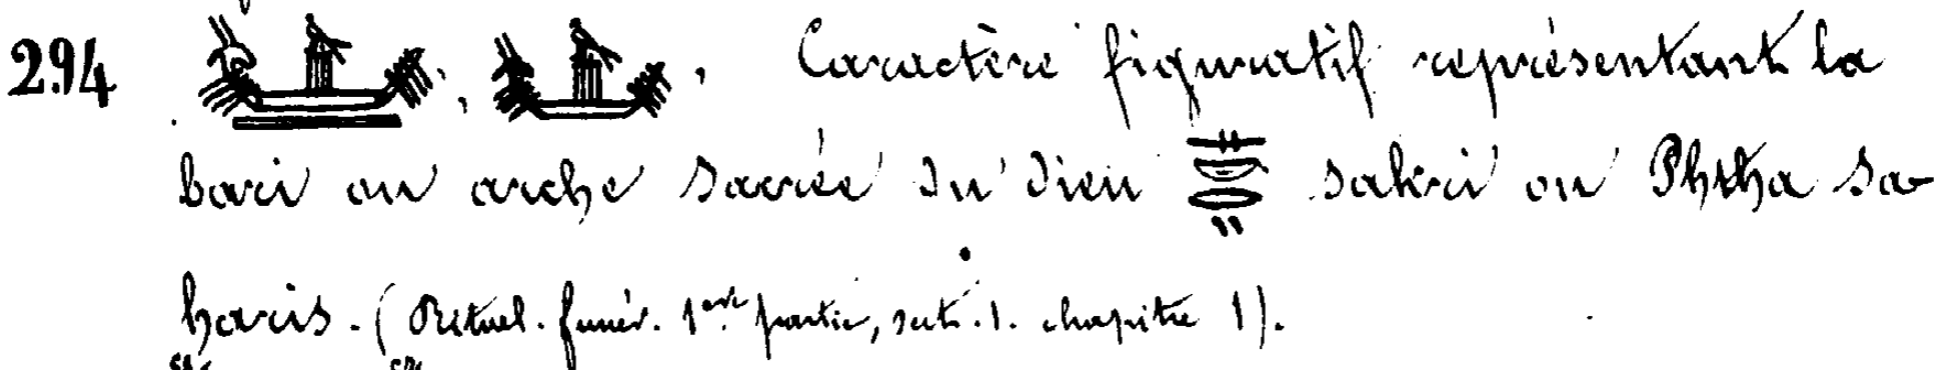 294 , . Caractère figuratif représentant la
bari ou arche sacrée du dieu sakri ou Phtha sa-
haris. (Rituel. funér. 1ère partie, sect. 1. chapitre 1).